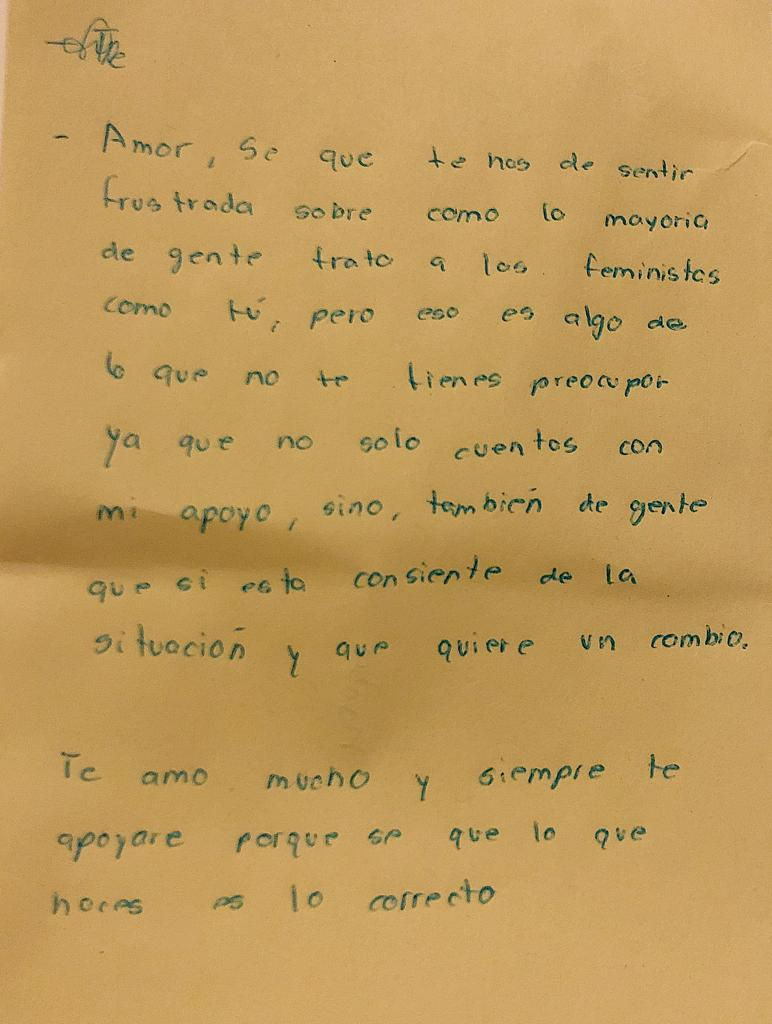 - Amor, se que te has de sentir
frustrada sobre como la mayoria
de gente trata a las feministas
como tú, pero eso es algo de
lo que no te tienes preocupar
ya que no solo cuentas con
mi apoyo, sino, también de gente
que si esta consiente de la
situación y que quiere un cambio.
Te amo mucho y siempre te
apoyare porque se que lo que
haces es lo correcto